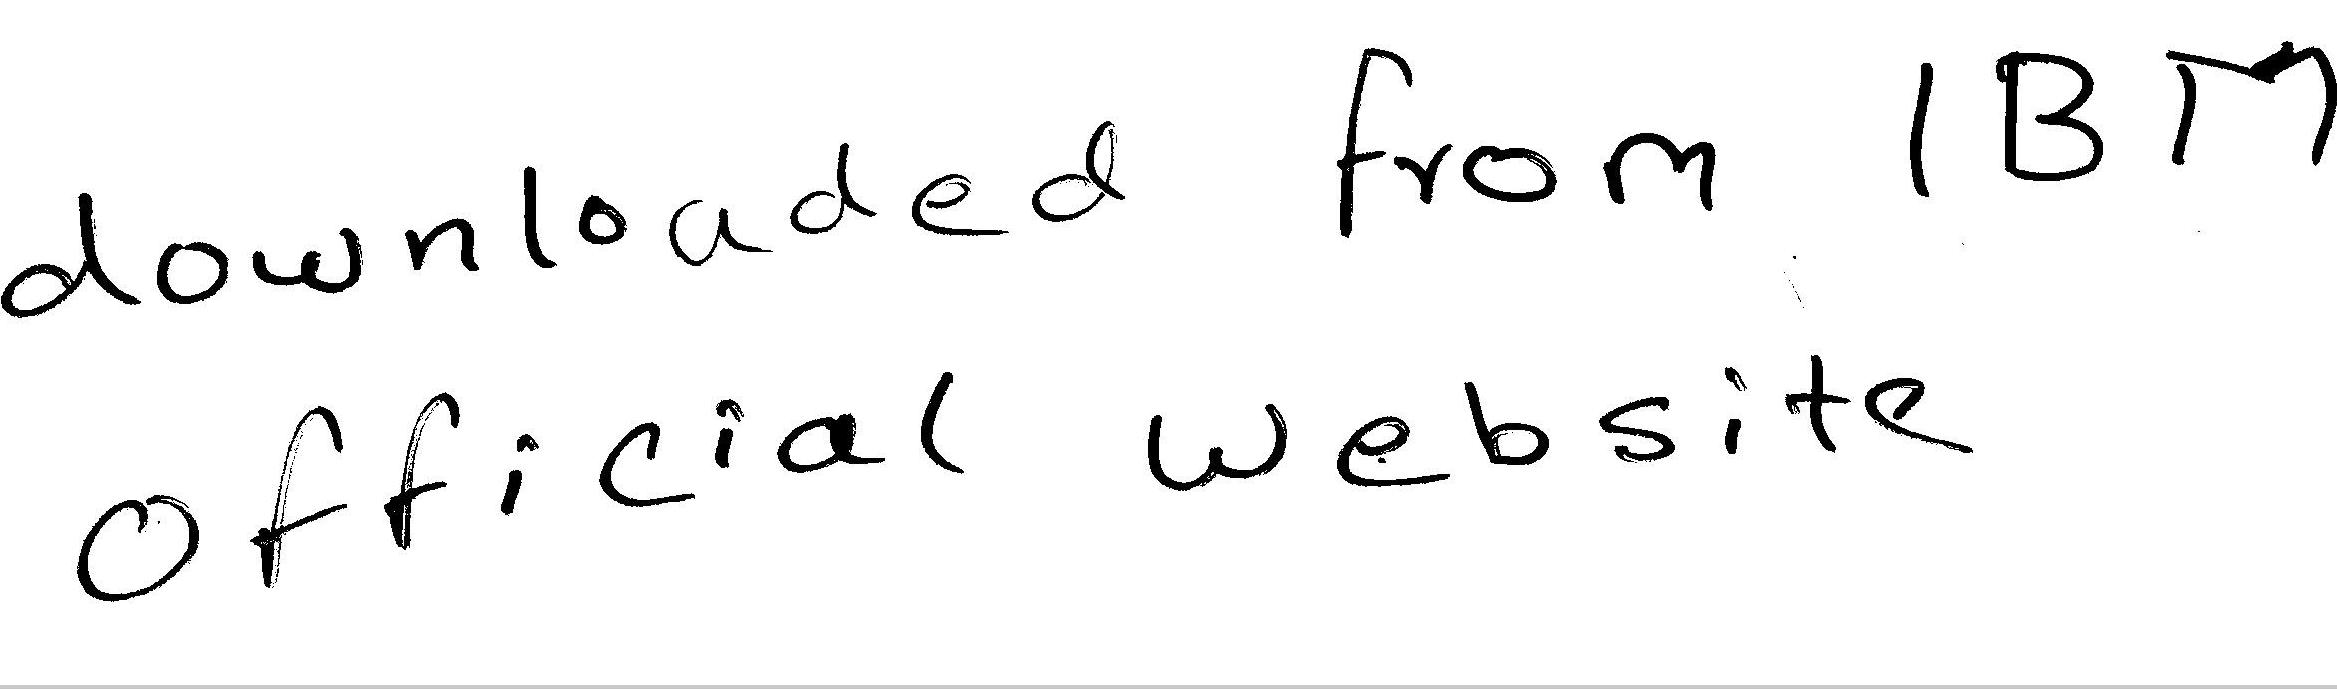 downloaded from IBM
official website